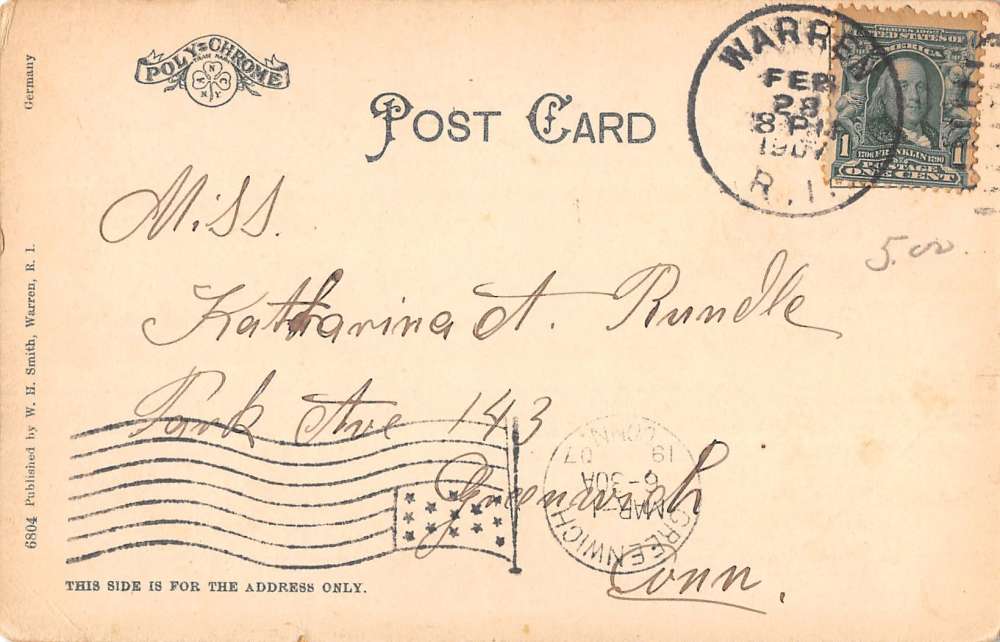 POLY-CHROME
TRADE MARK
A N C
N Y
POST CARD
WARREN
FEB
28
8 PM
1907
R.I.
SERIES 1902
UNITED STATES OF
AMERICA
1706 FRANKLIN 1790
POSTAGE
1 ONE CENT 1
5.00
Germany
6804 Published by W. H. Smith, Warren, R. I.
Miss.
Katharina A. Rundle
Park Ave 143
Greenwich
Conn.
GREENWICH
MAR 1
6-30A
19 07
CONN.
THIS SIDE IS FOR THE ADDRESS ONLY.